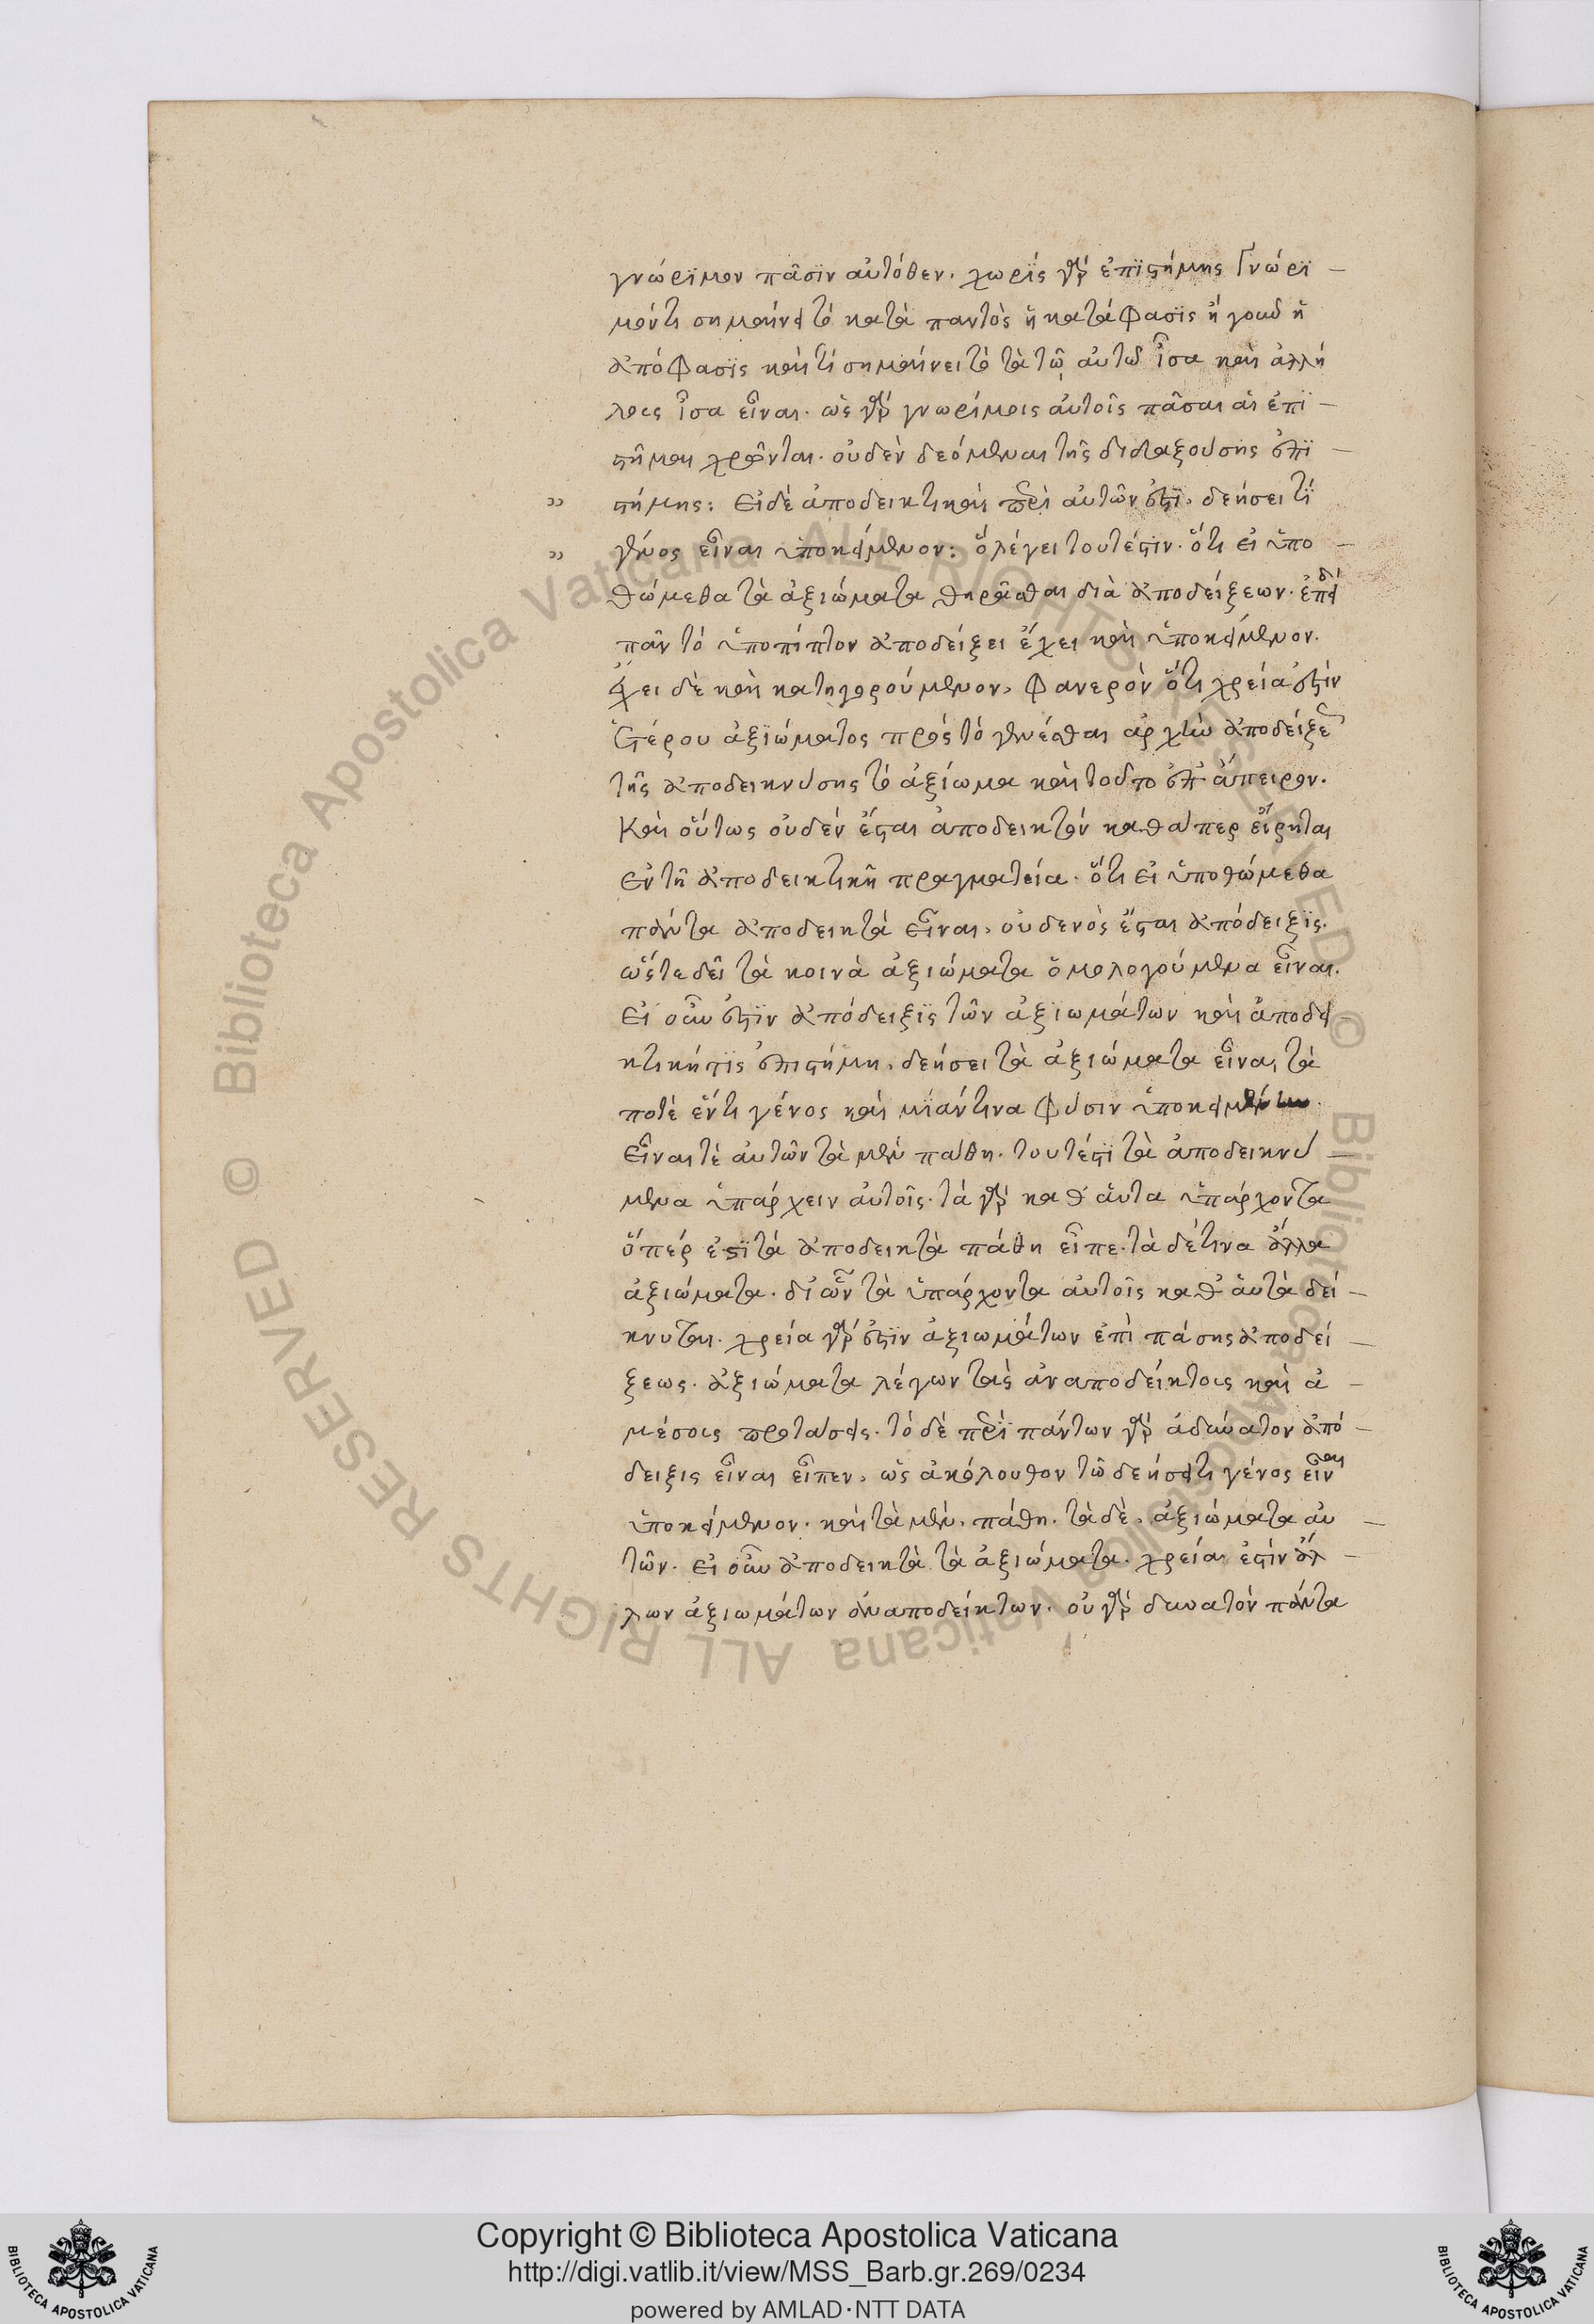 γνώριμον πᾶσιν αὐτόθεν. χωρίς γὰρ ἐπιστήμης γνώρι –
μόν τι σημαίνει τό κατὰ παντὸς ἢ κατάφασις ἤγουν ἡ
ἀπόφασις καὶ τί σημαίνει τὸ τὰ τῷ αὐτῷ ἶσα καὶ ἀλλή
λοις ἶσα εἶναι. ὡς γὰρ γνωρίμοις αὐτοῖς πᾶσαι αἱ ἐπι –
στῆμαι χρῶνται. οὐδὲν δεόμεναι τῆς διδαξούσης ἐπι –
" στήμης: Εἰ δὲ ἀποδεικτικὴ περὶ αὐτῶν ἐστι. δεήσει τί
" γένος εἶναι ὑποκείμενον: ὅ λέγει τουτέστιν. ὅτι εἰ ὑπο –
θώμεθα τὰ ἀξιώματα θηρᾶσθαι διὰ ἀποδείξεων. ἐπεὶ δὲ
πᾶν τό ὑποπίπτον ἀποδείξει ἔχει καὶ ὑποκείμενον.
ἔχει δὲ καὶ κατηγορούμενον. φανερὸν ὅτι χρεία ἐστὶν
ἑτέρου ἀξιώματος πρὸς τό γενέσθαι ἀρχὴν ἀποδείξεως
τῆς ἀποδεικνύσης τό ἀξίωμα καὶ τοῦτο ἐπ' ἄπειρον.
Καὶ οὕτως οὐδέν ἔσται ἀποδεικτόν καθάπερ εἴρηται
ἐν τῇ ἀποδεικτικῇ πραγματεία. ὅτι εἰ ὑποθώμεθα
πάντα ἀποδεικτά εἶναι. οὐδενὸς ἔσται ἀπόδειξις.
ὥστε δεῖ τὰ κοινὰ ἀξιώματα ὁμολογούμενα εἶναι.
Εἰ οὖν ἐστιν ἀπόδειξις τῶν ἀξιωμάτων καὶ ἀποδει
κτική τις ἐπιστήμη. δεήσει τὰ ἀξιώματα εἶναι τὰ
ποτὲ ἕν τι γένος καὶ μίαν τινα φύσιν
εἶναι τὲ αὐτῶν τὰ μὲν πάθη. τουτέστι τὰ ἀποδεικνύ –
μενα ὑπάρχειν αὐτοῖς. τά γὰρ καθ' αὑτα ὑπάρχοντα
ὅπέρ ἐστι τά ἀποδεικτὰ πάθη εἶπε. τὰ δέ τινα ἄλλα
ἀξιώματα. δι' ὧν τὰ ὑπάρχοντα αὐτοῖς καθ' αὑτὰ δεί –
κνυται. χρεία γὰρ ἐστιν ἀξιωμάτων ἐπὶ πάσης ἀποδεί –
ξεως. ἀξιώματα λέγων τὰς ἀναποδείκτοις καὶ ἀ –
μέσοις προτάσεις. τὸ δὲ περὶ πάντων γὰρ ἀδύνατον ἀπό –
δειξις εἶναι εἶπεν. ὡς ἀκόλουθον τῷ δεήσει τι γένος εἶναι
ὑποκείμενον. καὶ τὰ μὲν. πάθη. τὰ δὲ. ἀξιώματα αὐ –
τῶν. εἰ οὖν ἀποδεικτὰ τὰ ἀξιώματα. χρεία ἐστὶν ἄλ –
λων ἀξιωμάτων ἀναποδείκτων. οὐ γὰρ δυνατόν πάντα
Copyright © Biblioteca Apostolica Vaticana
http://digi.vatlib.it/view/MSS_Barb.gr.269/0234
powered by AMLAD·NTT DATA